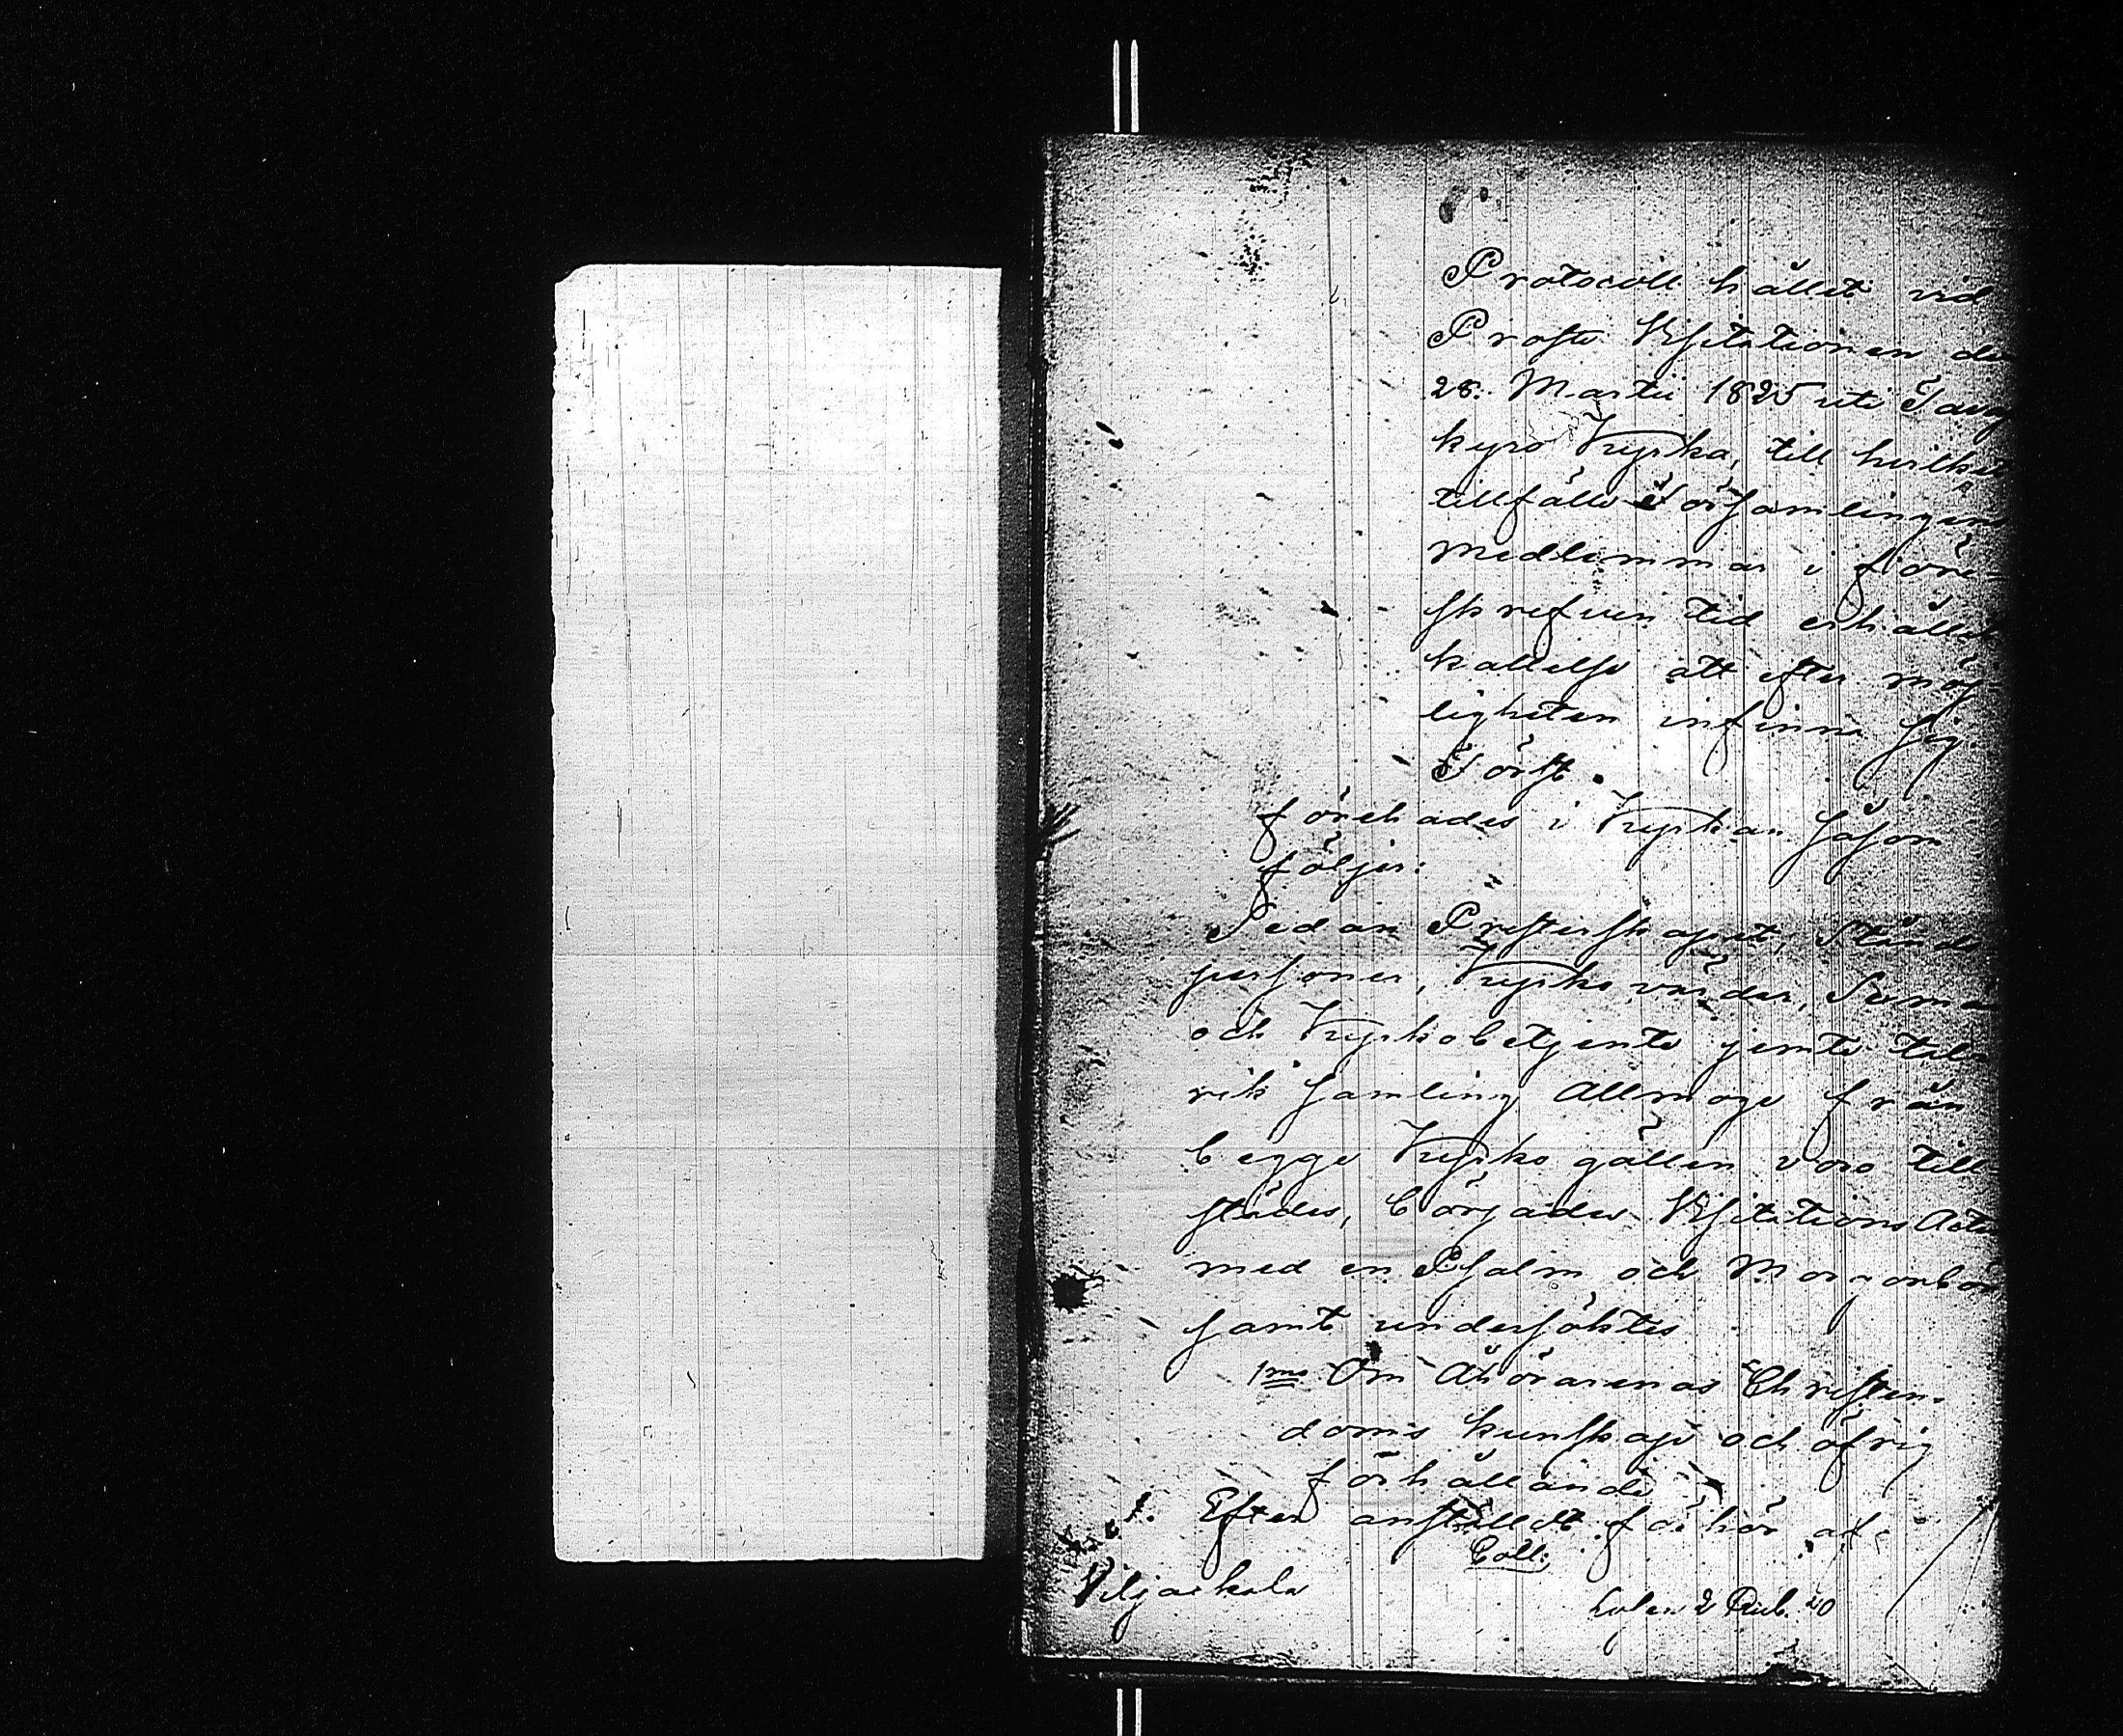 Protocoll hållet vid
Prosts Visitationen den
28. Martii 1825 uti Tavast
kyro Kyrka, till hvilket
tillfälle Församlingens
medlemmar i före-
skrefven tid erhållit
kallelse att efter möj-
ligheten infinna sig.
Först.
förehades i Kyrkan såsom
följer:
Sedan Presterskapet, Stånds
personer, Kyrko värdar, Sexmän
och Kyrkobetjente jemte tal-
rik samling Allmoge från
begge Kyrko gällen voro till
städes, börjades Visitations Acten
med en Psalm och Morgonbön
samt undersöktes
1mo Om Åhörarenas Christen-
doms kunskap och öfrig
förhållande
1. Efter anstäldt förhör af
Coll.
Viljackala
2 Rub. 20